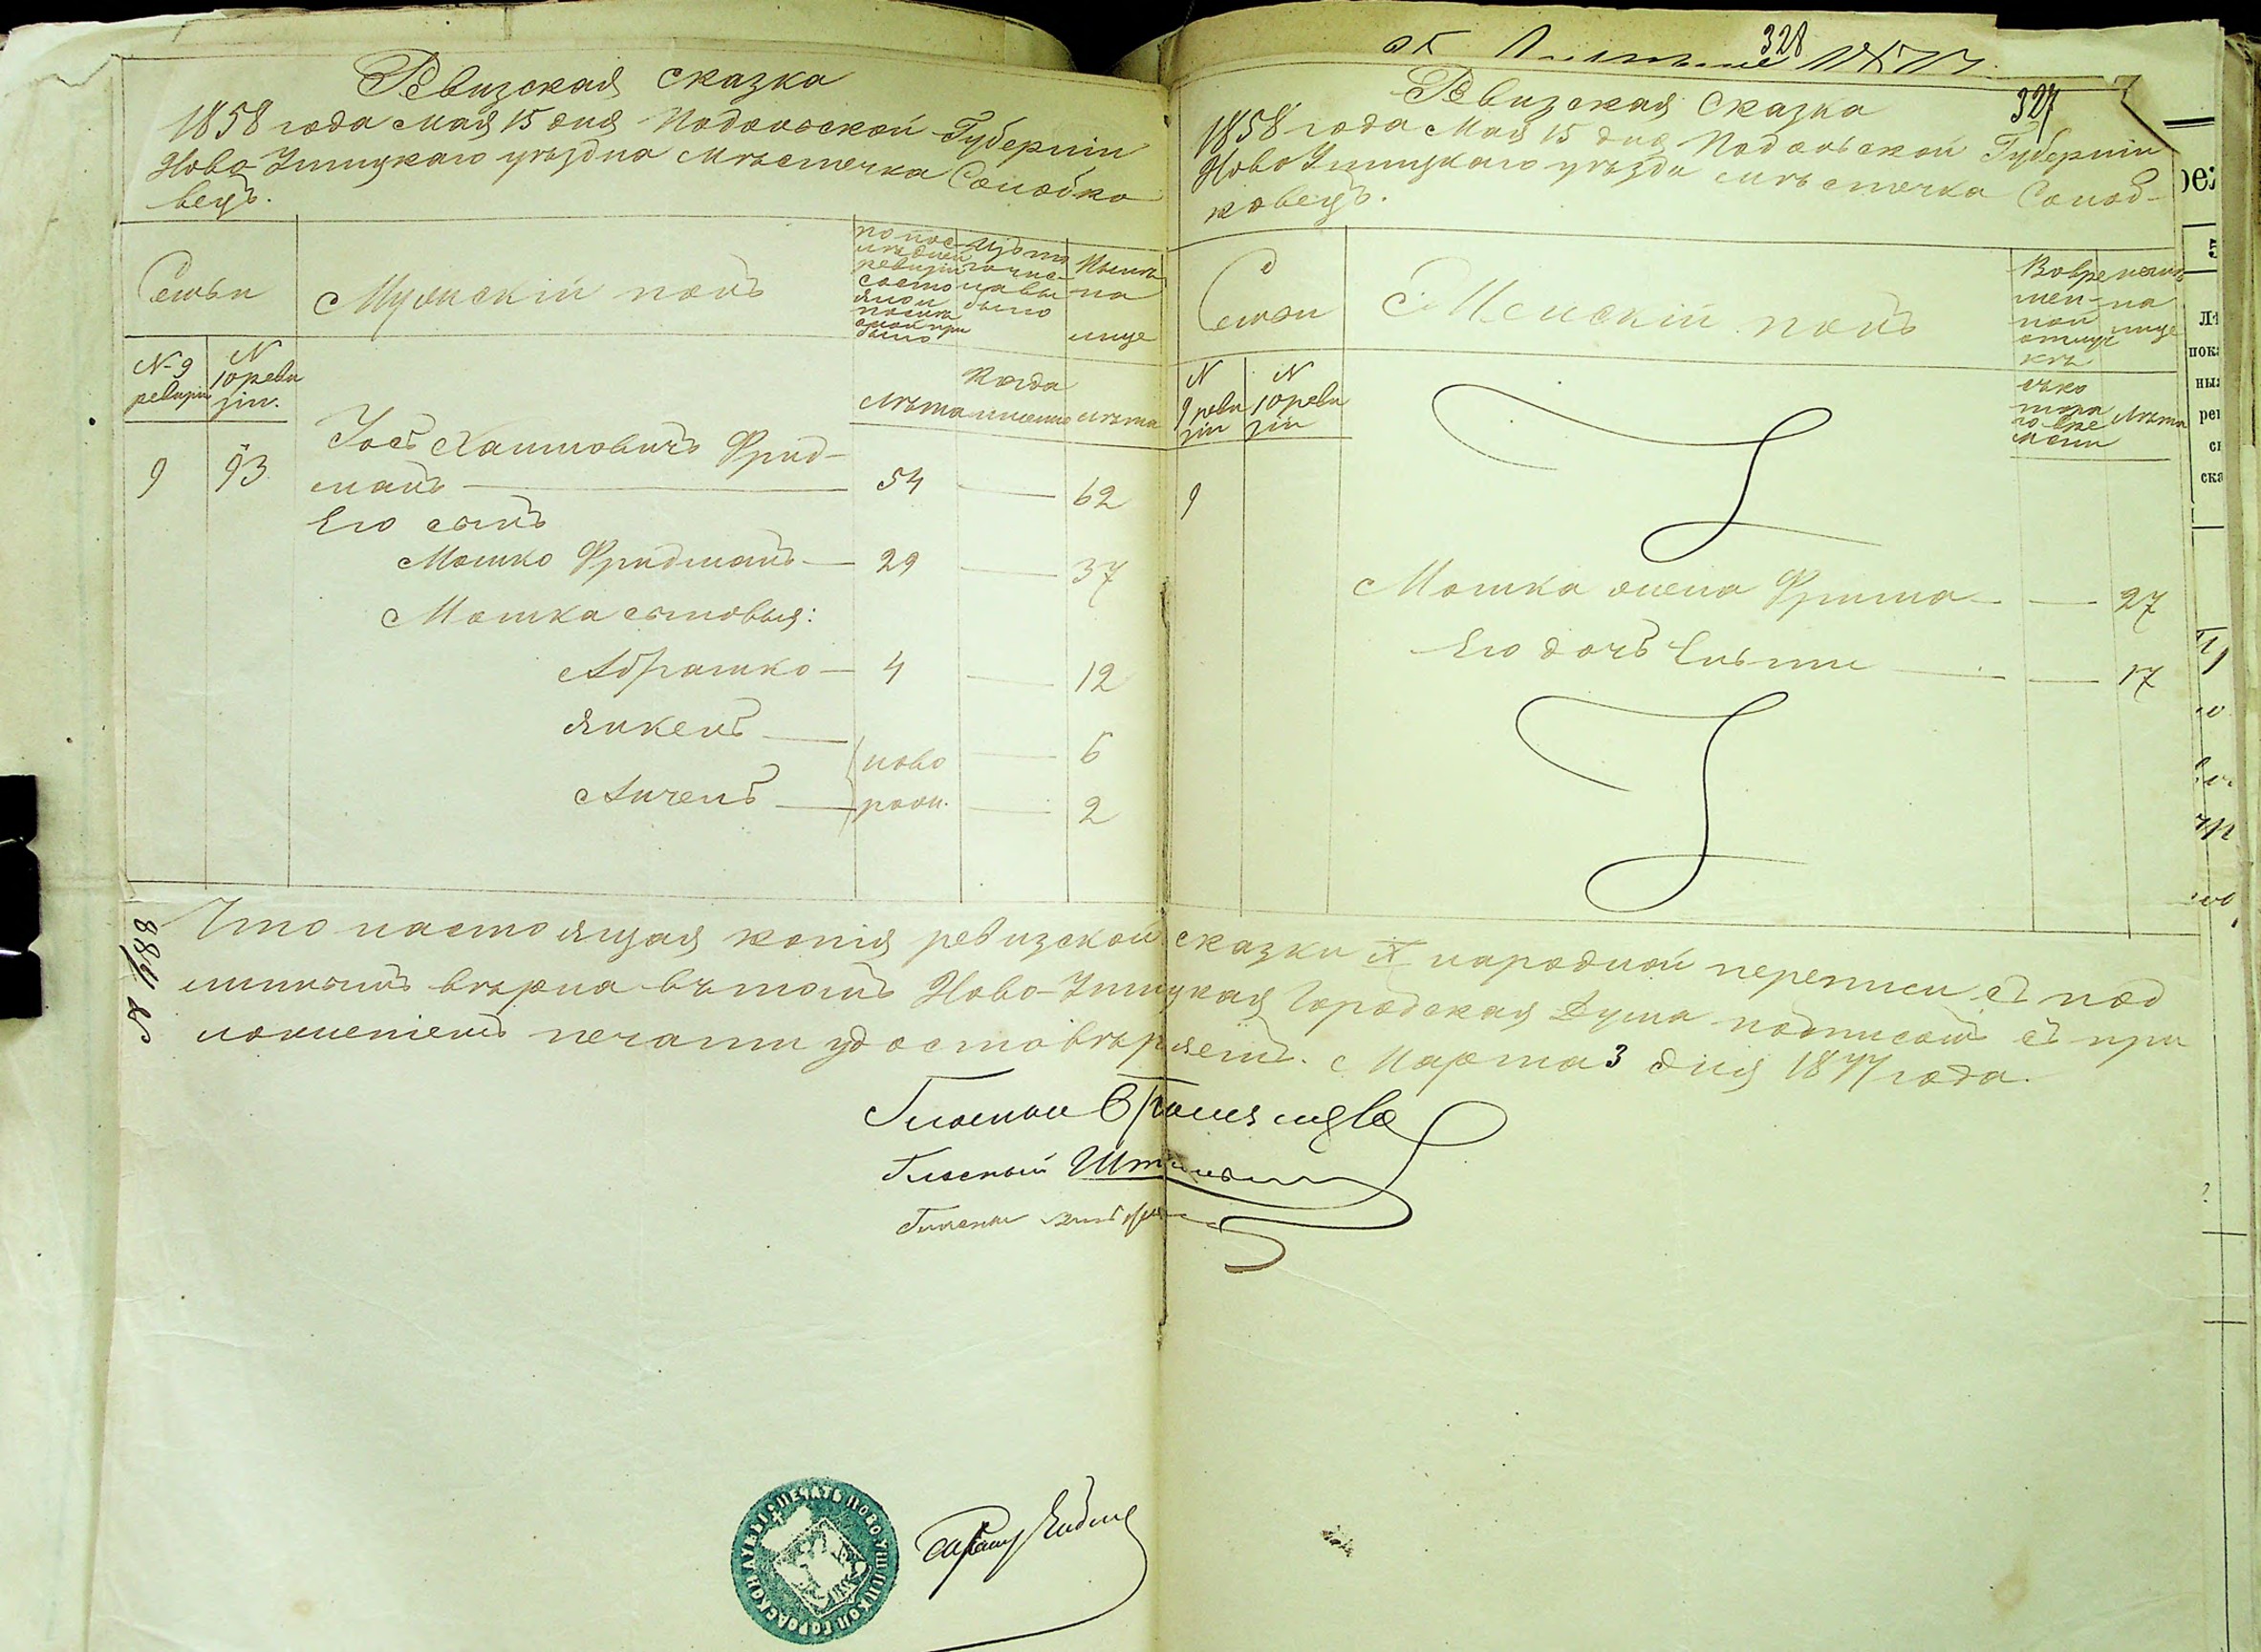 328
Ревизская сказка
1858 года мая 15 дня Подольской Губерніи
Ново-Ушицкаго уѣзда мѣстечка Солобко
вецъ.
Семьи
Мужскій полъ
по пос
лѣдней
ревизіи
состо
яло и
послѣ
оной при
было
Изъ то
го чис
ла вы
было
Нынѣ
на
лице
N 9
ревизіи
N
10 реви
зіи.
Лѣта
Когда
именно
Лѣта
9
93
Іось Хаимовичъ Фрид-
манъ
54
62
Его сынъ
Мошко Фридманъ
29
37
Мошка сыновья:
Абрашко
4
12
Янкель
ново
6
Анчель
рожд.
2
327
Ревизская сказка
1858 года Мая 15 дня Подольской Губерніи
Ново Ушицкаго уѣзда мѣстечка Солоб-
ковецъ.
Семьи
Женскій полъ
Во вре
мен-
ной
отлуч
кѣ
нынѣ
на
лице
N
9 реви
зіи
N
10 реви
зіи
съ ко
тора
го вре
мени
Лѣта
9
Мошка жена Фрима
27
Его дочь
17
Что настоящая копія ревизской сказки X народной переписи съ под
линнымъ вѣрна въ томъ Ново-Ушицкая Городская Дума подписомъ съ при
ложеніемъ печати удостовѣряетъ. Марта 3 дня 1877 года.
Гласный
Гласный
Гласный
ПЕЧАТЬ НОВО УШИЦКОЙ ГОРОДСКОЙ ДУМЫ